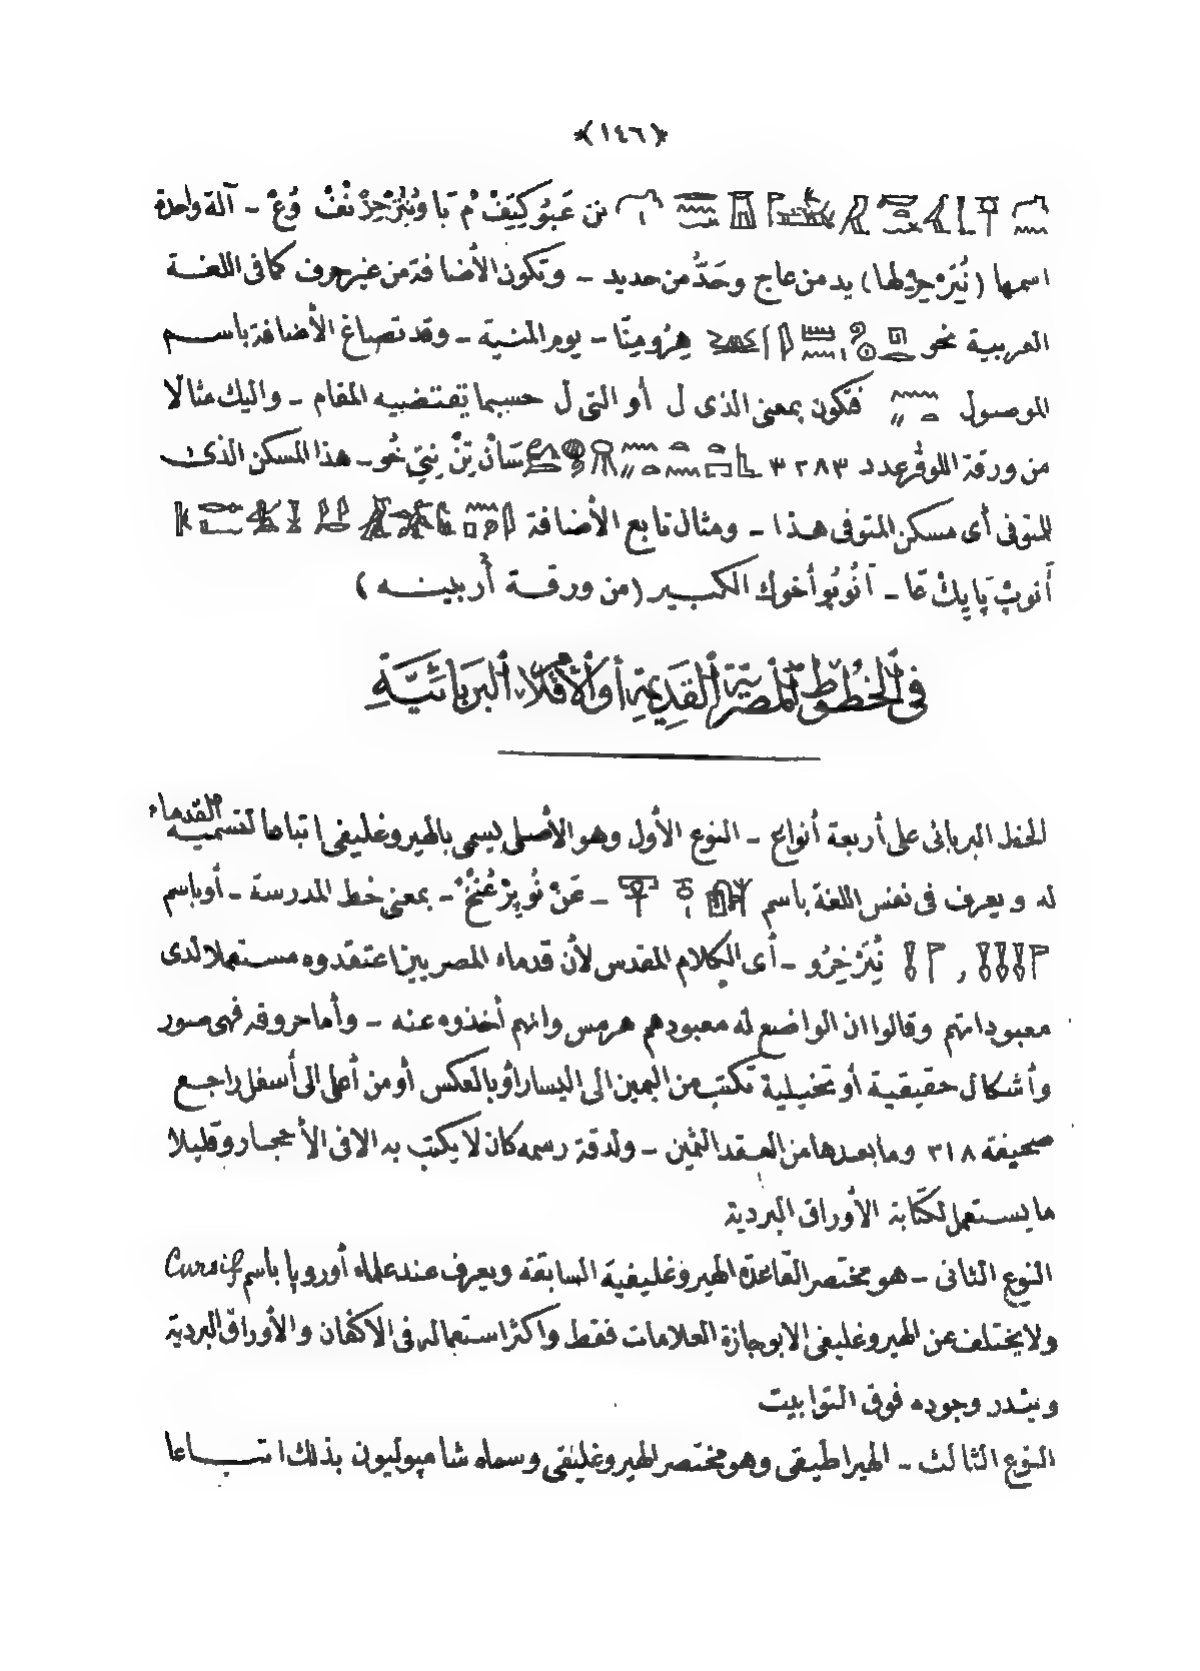 ﴿١٤٦﴾
نن عَبُو كِيَفْ مْ بَا وُ نُتَرْخِرْ نُفْ وُعْ - آلة واحدة
اسمها (نُتَرْخِرْ طا) يد من عاج وحَدُّ من حديد - وتكون الأضافة من غير حرف كما فى اللغـة
العربيـة نحو هِرُو مِنَّا - يوم المنيـة - وقد تصاغ الأضافة باســم
الموصول فتكون بمعنى الذى ل أو التى ل حسبما يقتضيه المقام - واليك مثالا
من ورقة اللوڤر عدد ٣٢٨٣ سَانْ تِنْ نِتِى خُو - هذا المسكن الذى
للمتوفى أى مسكن المتوفى هـذا - ومثال تابع الأضافة
أَنوبْ پَا يِكْ عَا - آنُوبُو أخوك الكبـير (من ورقـة أربينـه)
فى الخُطُوطِ المصرِيَّةِ القَدِيمَةِ أو الأقْلَامِ البَرْبَائِيَّةِ
الخط البربائى على أربعة أنواع - النوع الأول وهو الأصلى يسمى بالهيروغليفى اتباعا لتسميـه القدماء
له ويعرف فى نفس اللغة باسم - عَنْ نُو پِرْ عُنْخْ - بمعنى خط المدرسة - أو باسم
, نُتَرْ خِرُو - أى الكلام المقدس لأن قدماء المصريين اعتقدوه مستعملا لدى
معبوداتهم وقالوا ان الواضع له معبودهم هرمس وانهم أخذوه عنه - وأما حروفه فهى صور
وأشكال حقيقيـة أو تخيلية تكتب من اليمين الى اليسار أو بالعكس أو من أعلى الى أسفل راجـع
صحيفة ٣١٨ وما بعدها من العـقد الثمين - ولدقة رسمه كان لا يكتب به الا فى الأحجـار وقليلا
ما يسـتعمل لكتابة الأوراق البردية
النوع الثانى - هو مختصر القاعدة الهيروغليفية السابقة ويعرف عند علماء أوروپا باسم Cursif
ولا يختلف عن الهيروغليفى الا بوجازة العلامات فقط واكثر استعماله فى الاكفان والأوراق البردية
ويندر وجوده فوق التوابيت
النوع الثالث - الهيراطيقى وهو مختصر الهيروغليفى وسماه شامپوليون بذلك اتـباعا